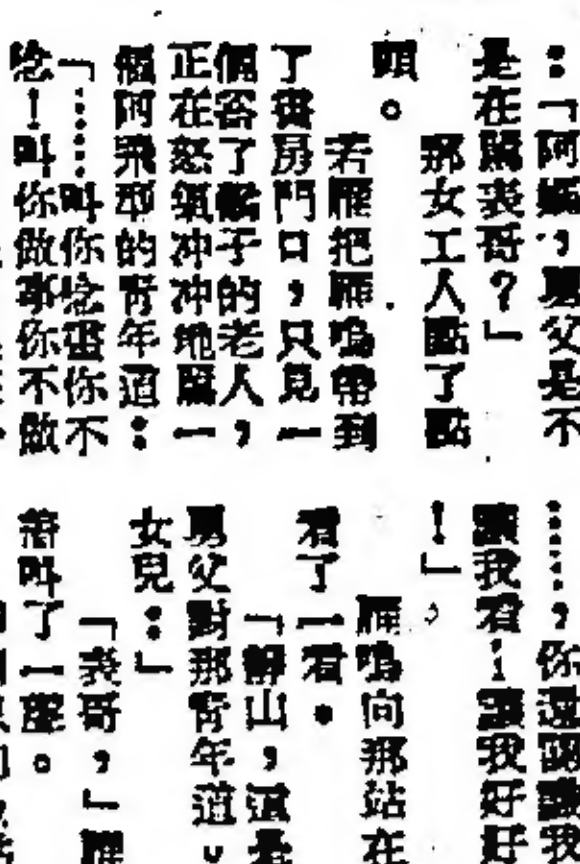 ：「阿嬸，舅父是不
是在罵表哥？」
那女工人點了點
頭。
若雁把雁鳴帶到
了書房門口，只見一
個吞了鬍子的老人，
正在怒氣冲冲地罵一
個阿飛型的青年道：
「……叫你唸書你不
唸！叫你做事你不做
……，你還認識我
讓我看！讓我好好
！」，
雁鳴向那站在
看了一看。
「靜山，這是
舅父對那青年道。
女兒：」
「表哥，」雁
叫了一聲。